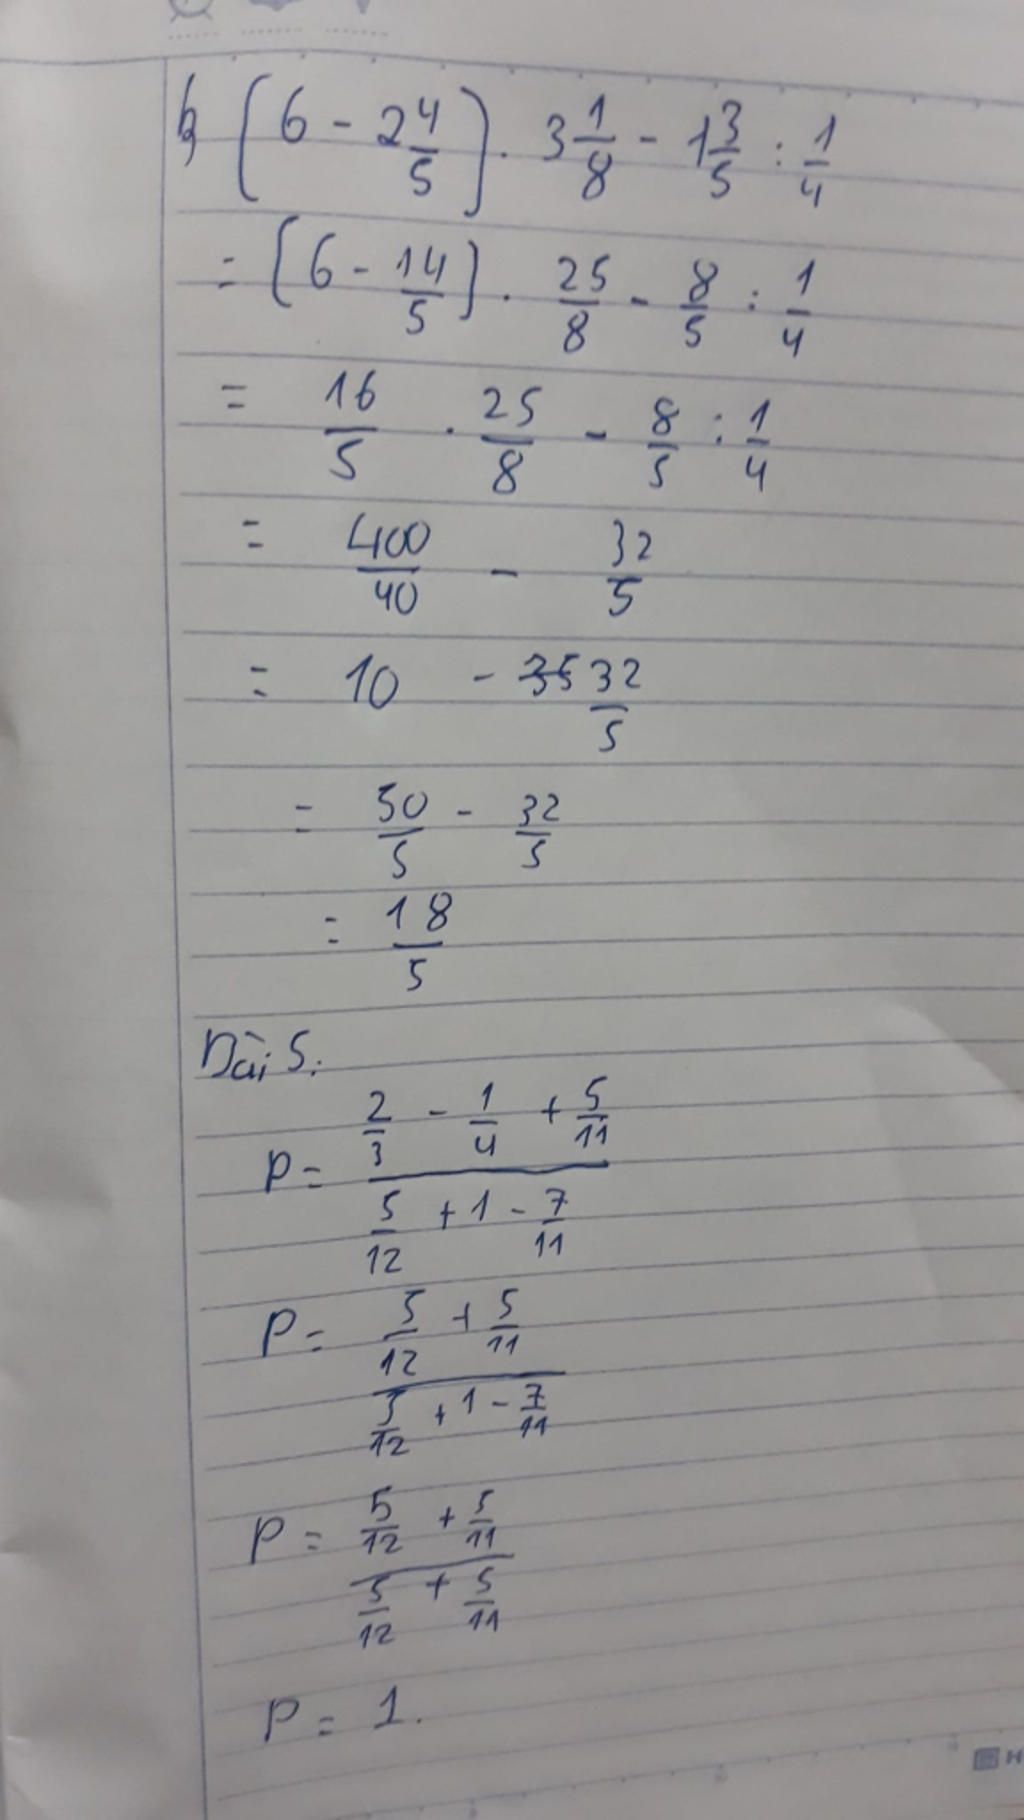 b) (6 - 2 4/5) . 3 1/8 - 1 3/5 : 1/4
= (6 - 14/5) . 25/8 - 8/5 : 1/4
= 16/5 . 25/8 - 8/5 : 1/4
= 400/40 - 32/5
= 10 - 35 32/5
= 50/5 - 32/5
= 18/5
Bài 5:
P = (2/3 - 1/4 + 5/11) / (5/12 + 1 - 7/11)
P = (5/12 + 5/11) / (5/12 + 1 - 7/11)
P = (5/12 + 5/11) / (5/12 + 5/11)
P = 1.